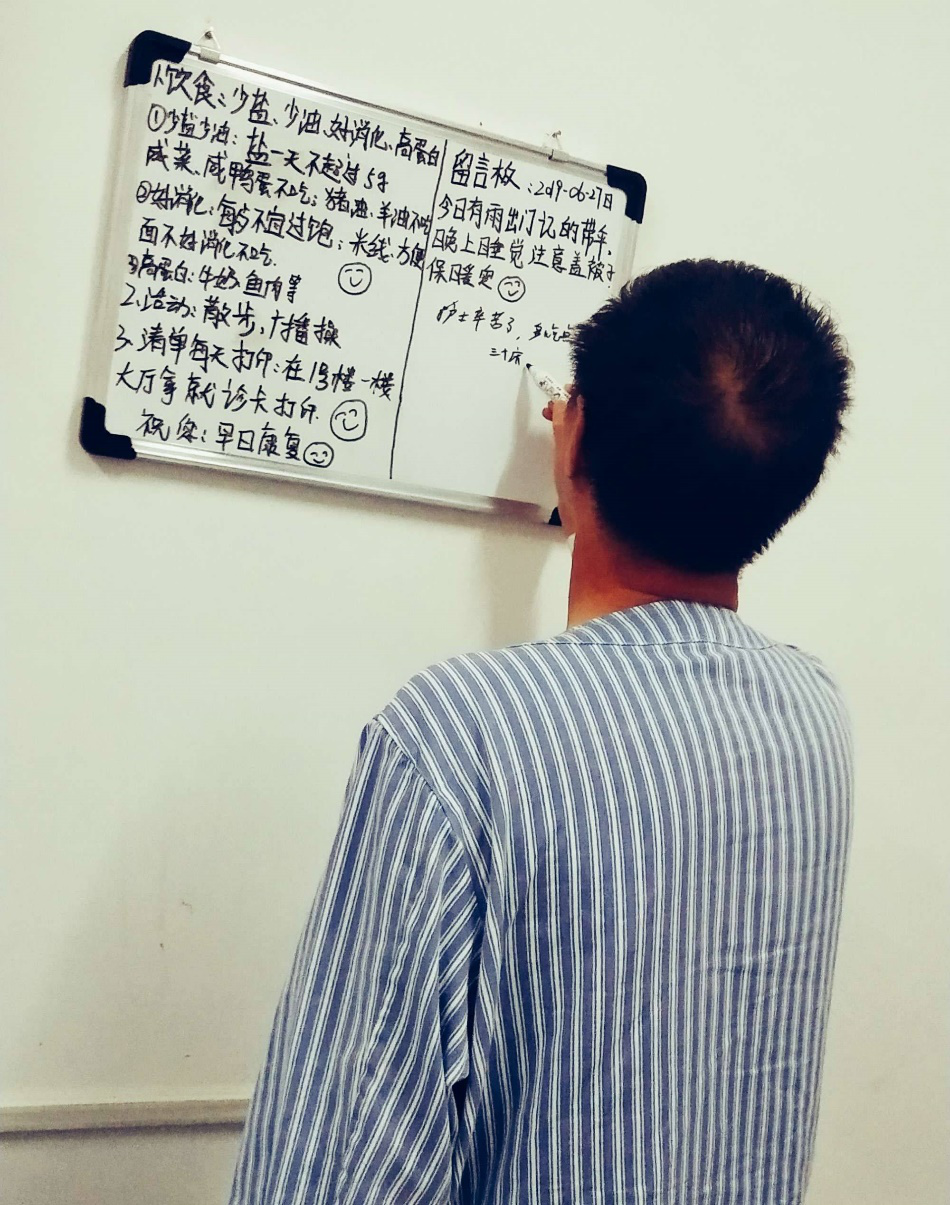 1、饮食：少盐、少油、好消化、高蛋白
①少盐少油：盐一天不超过5g
咸菜、咸鸭蛋不吃；猪油、羊油不吃
②好消化：每与不宜过饱；米线、方便
面不好消化不吃.
③高蛋白：牛奶、鱼肉等
2、活动：散步、广播操
3、清单每天打印：在1号楼一楼
大厅拿就诊卡打印.
祝您：早日康复
留言板：2019-06-27日
今日有雨出门记的带伞.
晚上睡觉注意盖被子
保暖哦
护士辛苦了，多吃点
三十床